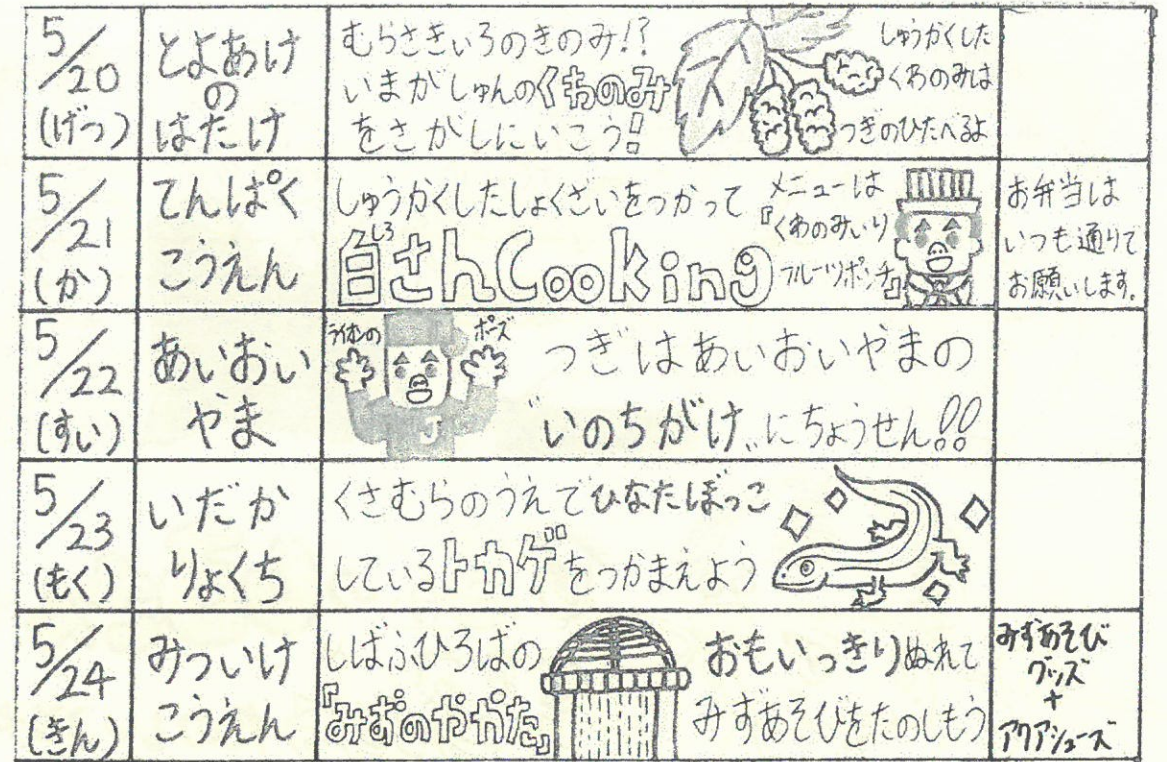 5/20
(げつ)
とよあけ
の
はたけ
むらさきいろのきのみ!?
いまがしゅんのくわのみ
をさがしにいこう!
しゅうかくした
くわのみは
つぎのひたべるよ
5/21
(か)
てんぱく
こうえん
しゅうかくしたしょくざいをつかって
白さんCooking
しろ
メニューは
『くわのみいり
フルーツポンチ』
お弁当は
いつも通りで
お願いします。
5/22
(すい)
あいおい
やま
ライオンの
ポーズ
J
つぎはあいおいやまの
〝いのちがけ〟にちょうせん!!
5/23
(もく)
いだか
りょくち
くさむらのうえでひなたぼっこ
しているトカゲをつかまえよう
5/24
(きん)
みついけ
こうえん
しばふひろばの
『みずのやかた』
おもいっきりぬれて
みずあそびをたのしもう
みずあそび
グッズ
+
アクアシューズ